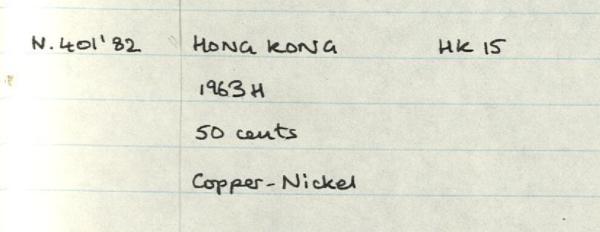 N. 401'82 HONG KONG HK 15
1963 H
50 cents
Copper-Nickel